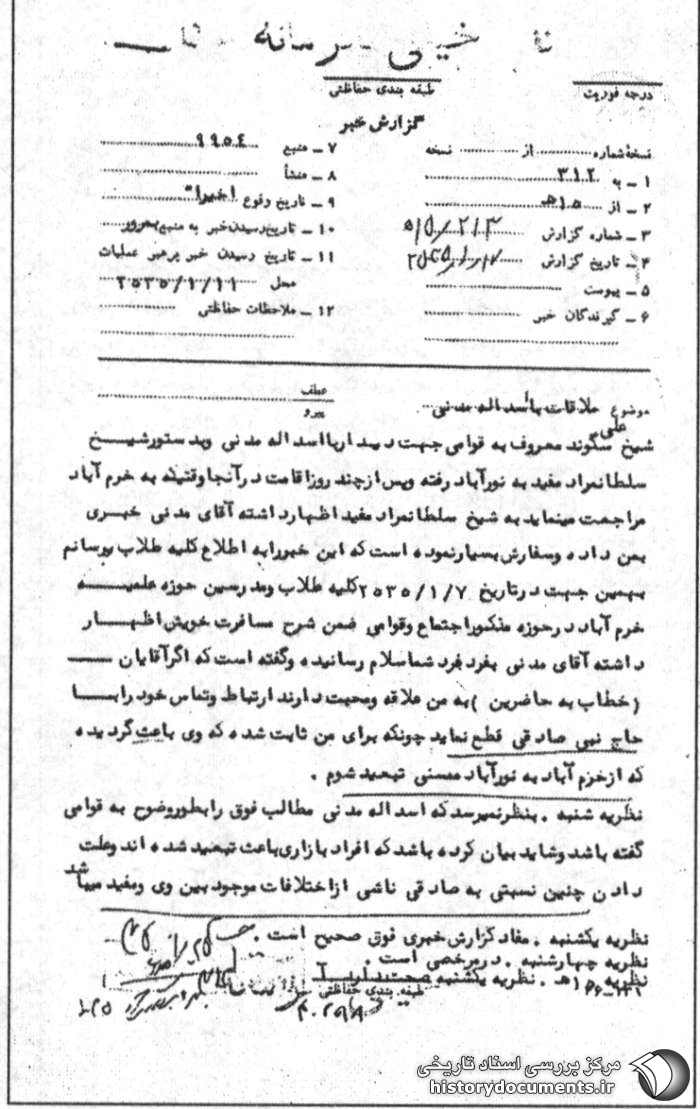 طبقه بندی حفاظتی
درجه فوریت
گزارش خبر
نسخهٔ شماره از نسخه
۱ ـ به ۳۱۲
۲ ـ از ۱۵هـ
۳ ـ شماره گزارش
۴ ـ تاریخ گزارش
۵ ـ پیوست
۶ ـ گیرندگان خبر
۷ ـ منبع ۹۹۵۴
۸ ـ منشأ
۹ ـ تاریخ وقوع اخیرا"
۱۰ ـ تاریخ رسیدن خبر به منبع بمرور
۱۱ ـ تاریخ رسیدن خبر برهبر عملیات
محل ۲۵۳۵/۱/۱۱
۱۲ ـ ملاحظات حفاظتی
موضوع ملاقات با اسد اله مدنی
عطف
پیرو
شیخ علی سگوند معروف به قوامی جهت دیدار با اسد اله مدنی و بدستور شیخ
سلطانمراد مفید به نورآباد رفته و پس از چند روز اقامت در آنجا وقتیکه به خرم آباد
مراجعت مینماید به شیخ سلطانمراد مفید اظهار داشته آقای مدنی خبری
بمن داده و سفارش بسیار نموده است که این خبر را به اطلاع کلیه طلاب برسانم
بهمین جهت در تاریخ ۲۵۳۵/۱/۷ کلیه طلاب و مدرسین حوزه علمیه
خرم آباد در حوزه مذکور اجتماع و قوامی ضمن شرح مسافرت خویش اظهار
داشته آقای مدنی بفرد فرد شما سلام رسانیده و گفته است که اگر آقایان
(خطاب به حاضرین) به من علاقه و محبت دارند ارتباط و تماس خود را با
حاج نبی صادقی قطع نماید چونکه برای من ثابت شده که وی باعث گردیده
که از خرم آباد به نورآباد ممسنی تبعید شوم .
نظریه شنبه . بنظر نمیرسد که اسد اله مدنی مطالب فوق را بطور وضوح به قوامی
گفته باشد و شاید بیان کرده باشد که افراد بازاری باعث تبعید شده اند و علت
دادن چنین نسبتی به صادقی ناشی از اختلافات موجود بین وی و مفید میباشد
نظریه یکشنبه . مفاد گزارش خبری فوق صحیح است .
نظریه چهارشنبه . در مرخصی است .
نظریه ۱۵هـ . نظریه یکشنبه صحت دارد
طبقه بندی حفاظتی
مرکز بررسی اسناد تاریخی
historydocuments.ir